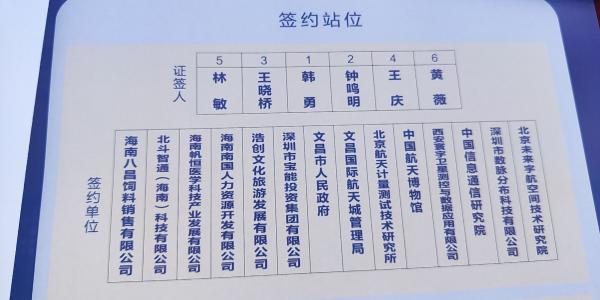 签约站位
证签人
5
林敏
3
王晓桥
1
韩勇
2
钟鸣明
4
王庆
6
黄薇
签约单位
海南八昌饲料销售有限公司
北斗智通（海南）科技有限公司
海南帆恒医学科技产业发展有限公司
海南南国人力资源开发有限公司
浩创文化旅游发展有限公司
深圳市宝能投资集团有限公司
文昌市人民政府
文昌国际航天城管理局
北京航天计量测试技术研究所
中国航天博物馆
西安寰宇卫星测控与数据应用有限公司
中国信息通信研究院
深圳市数脉分布科技有限公司
北京未来宇航空间技术研究院